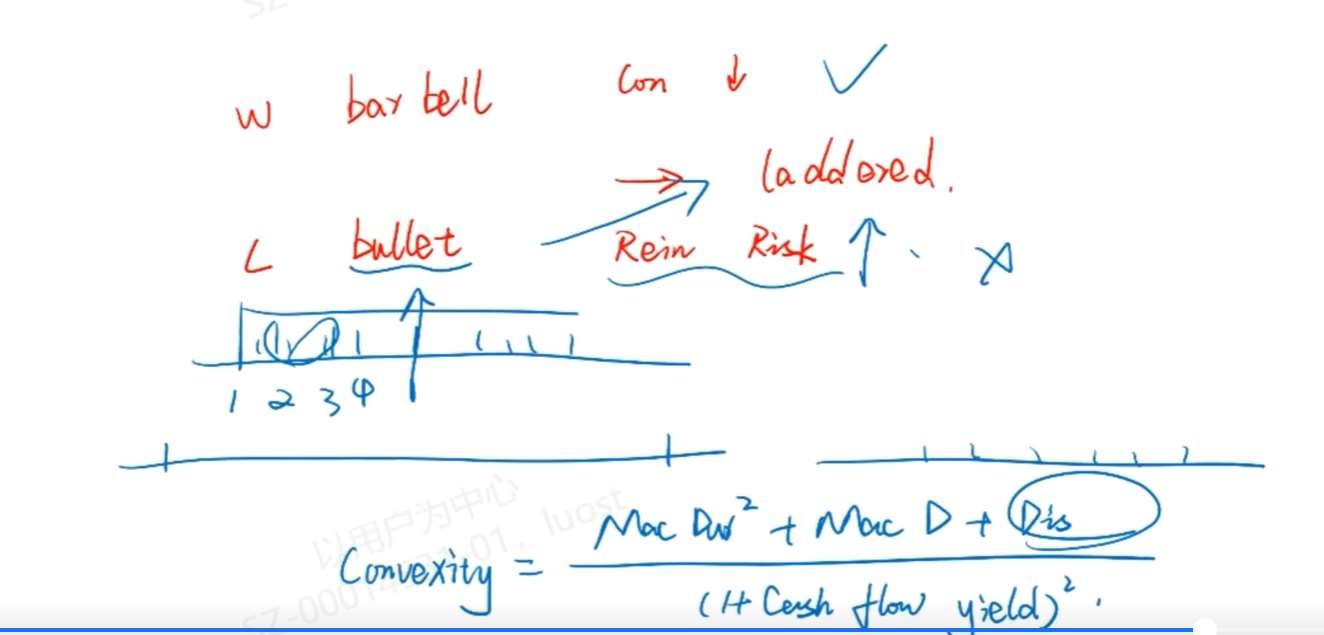 W barbell Con ↓ ✓
→ laddered.
L bullet Rein Risk ↑ ×
1 2 3 4
以用户为中心
luost
Convexity = (Mac Dur² + Mac D + Dis) / (1+ Cash flow yield)².